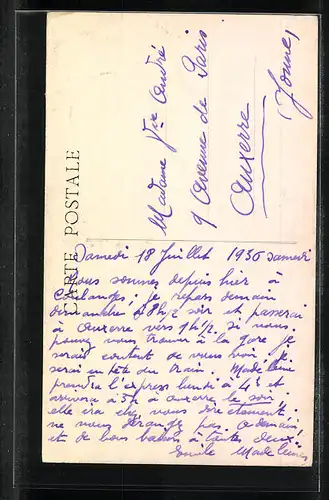 CARTE POSTALE
Madame Vve André
9 Avenue de Paris
Auxerre
Yonne
Samedi 18 Juillet 1936 samedi
Nous sommes depuis hier à
Coulanges; je repars demain
dimanche à 8h½ soir et passerai
à Auxerre vers 9h½ si vous
pouvez vous trouver à la gare je
serais content de vous voir. Je
serai en tête du train. Madeleine
prendra l'express lundi à 4h et
arrivera à 5h à Auxerre le soir.
elle ira chez vous directement.
ne vous dérangez pas. A demain
et de bons baisers à toutes deux.
Emile Madeleine